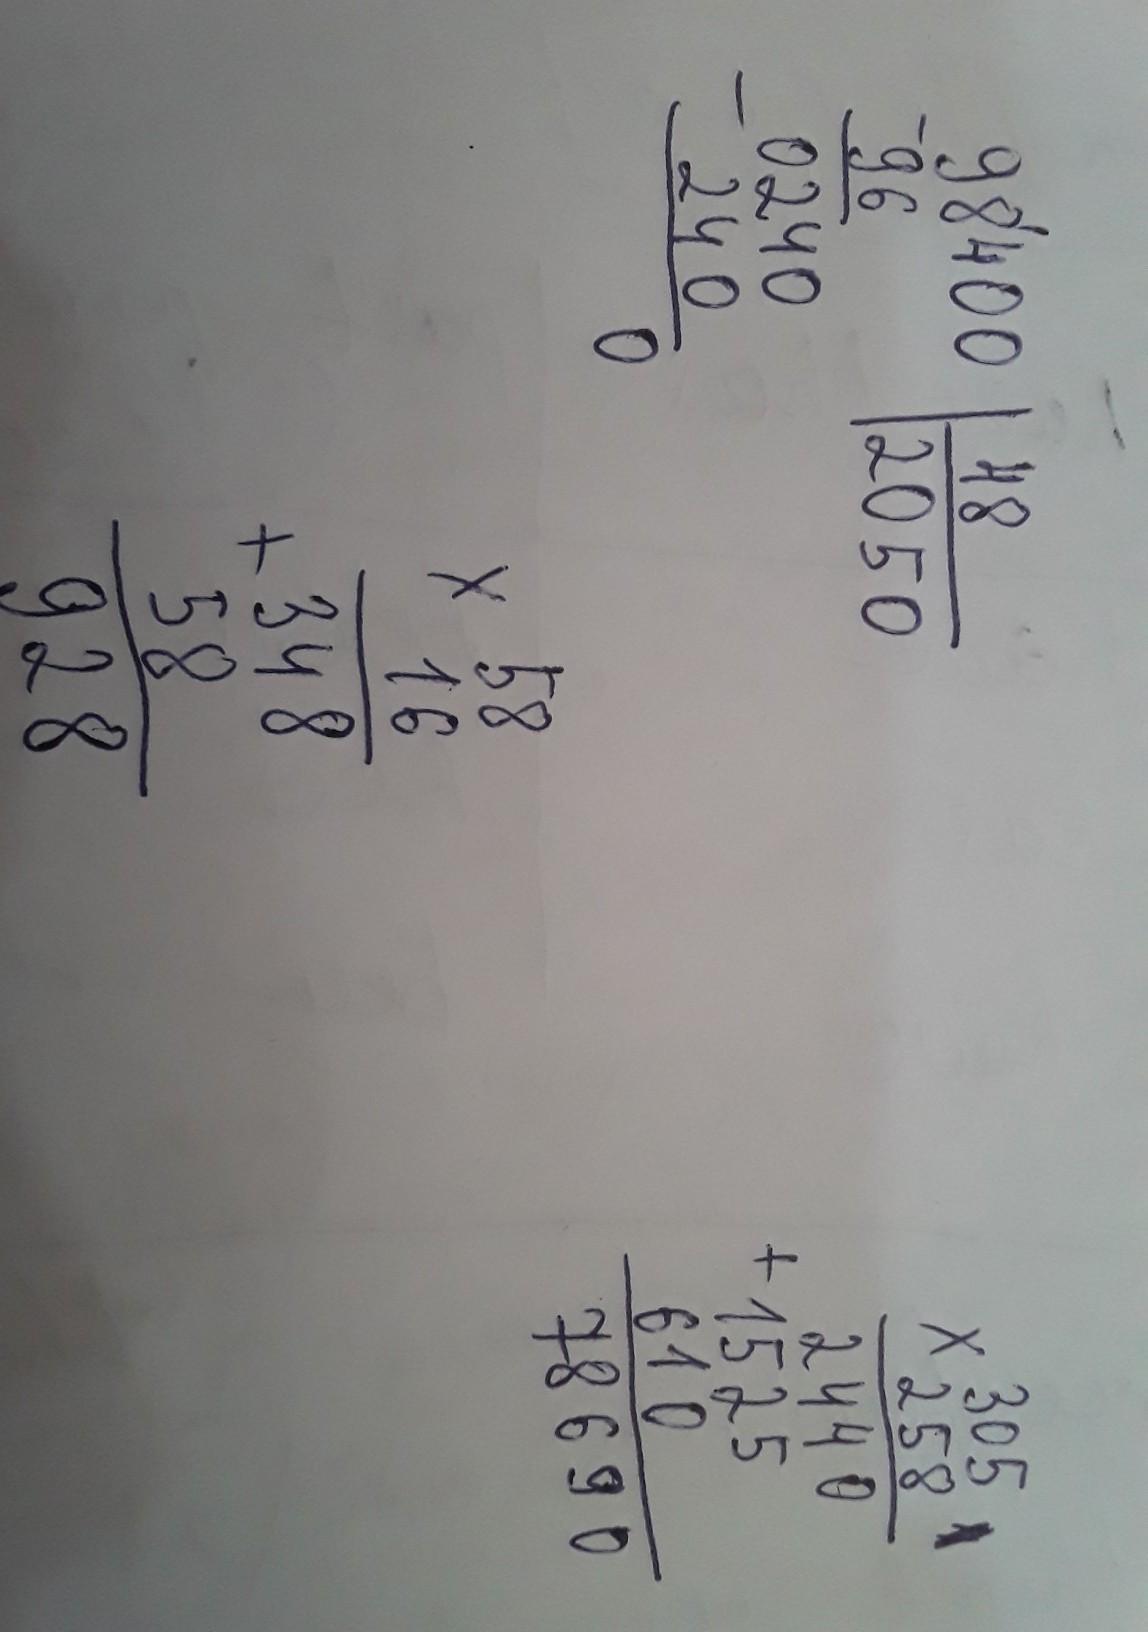 98400 | 48
-96 2050
- 0240
240
0
x 58
16
+ 348
58
928
x 305
258
2440
+ 1525
610
78690